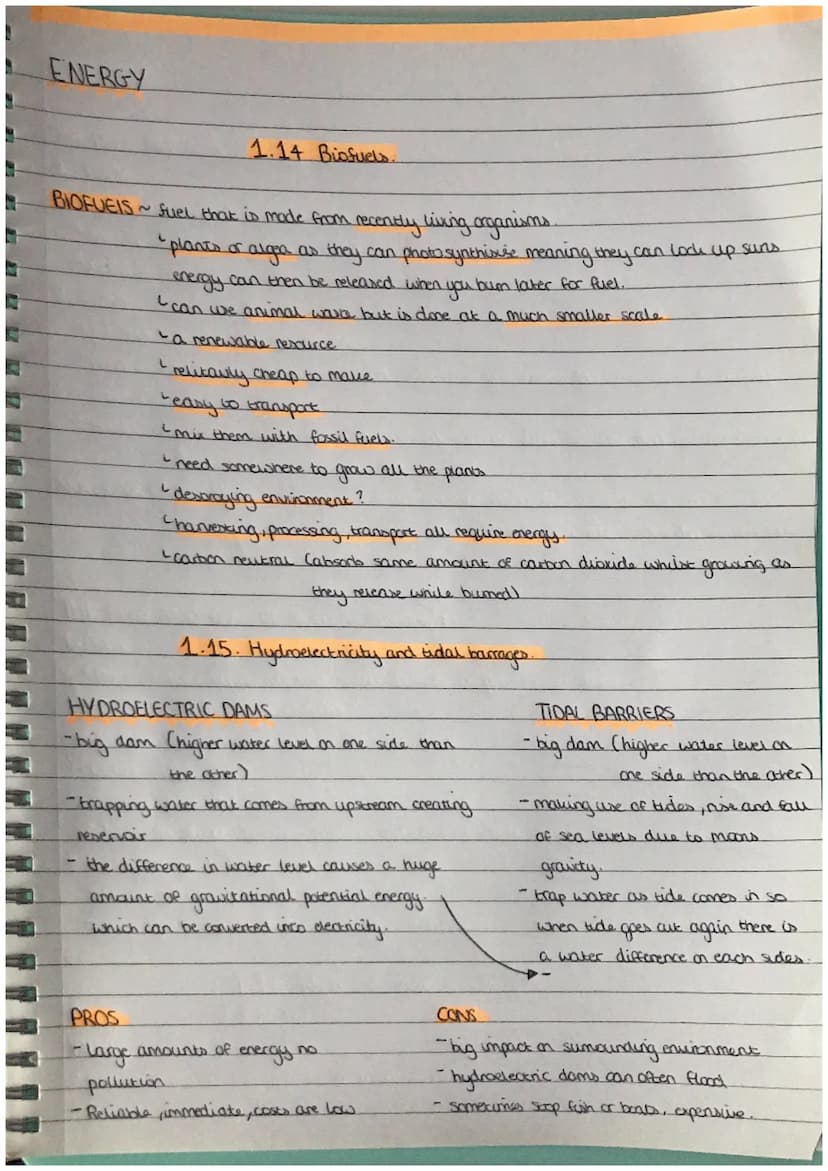 ENERGY
1.14 Biofuels.
BIOFUELS ~ fuel that is made from recently living organisms.
plants or algea as they can photosynthisise meaning they can lock up suns
energy can then be released when you burn later for fuel.
can use animal waste but is done at a much smaller scale
a renewable resource
relitavly cheap to make
easy to transport
mix them with fossil fuels.
need somewhere to grow all the plants
desoraying environment?
harvesting, processing, transport all require energy.
carbon neutral (absorb same amount of carbon dioxide whilst growing as
they release while burned)
1.15. Hydroelectricity and tidal barrages.
HYDROELECTRIC DAMS
- big dam (higher water level on one side than
the other)
- trapping water that comes from upstream creating
reservoir
- the difference in water level causes a huge
amount of gravitational potential energy.
which can be converted into electricity.
TIDAL BARRIERS
- big dam (higher water level on
one side than the other)
- making use of tides, rise and fall
of sea levels due to moons
gravity.
- trap water as tide comes in so
when tide goes out again there is
a water difference on each sides.
-
PROS
- large amounts of energy no
pollution
- Reliable, immediate, costs are low
CONS
- big impact on surrounding environment
- hydroelectric dams can often flood
- sometimes stop fish or boats, expensive.